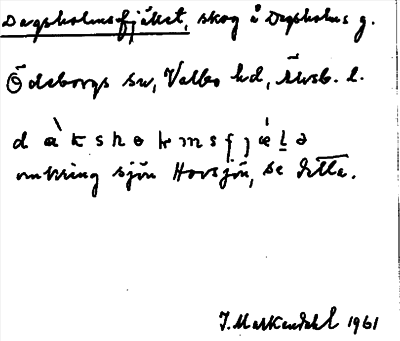 Dagsholmsfjället, skog å Dagsholms g.
Ödeborgs sn, Valbo hd, Älvsb. l.
omkring sjön Hovsjön, se detta.
J. Markendahl 1961